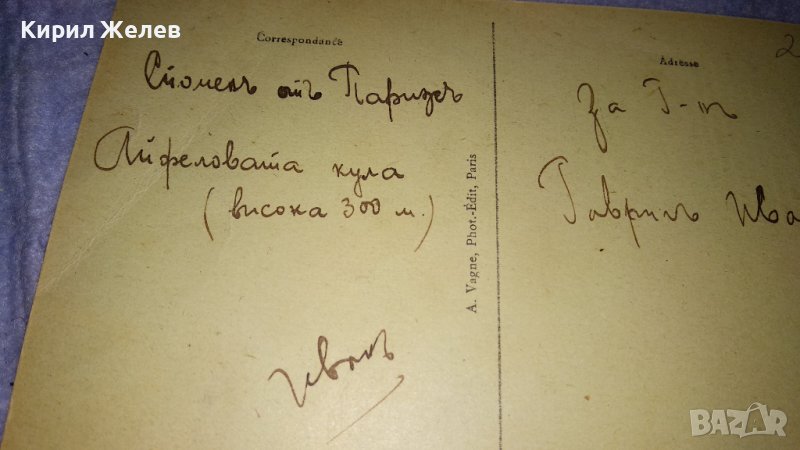 Кирил Желев
Correspondance
Споменъ отъ Парижъ
Айфеловата кула
(висока 300 м.)
Иванъ
A. Vagne, Phot.-Édit, Paris
Adresse
2
За Г-нъ
Гаврилъ Ива
BAZAR